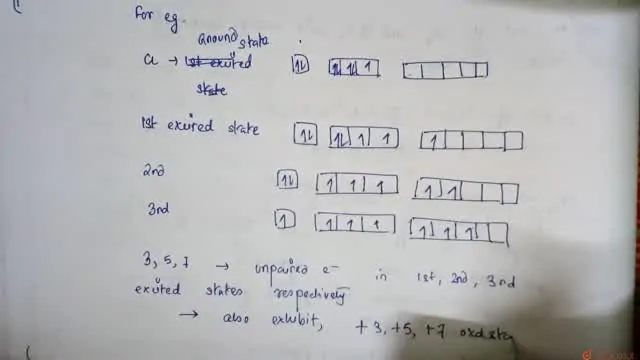 for eg.
Ground state
Cl → 1st excited
state
1st excited state
2nd
3rd
3, 5, 7 → unpaired e⁻ in 1st, 2nd, 3rd
excited states respectively
→ also exhibit, +3, +5, +7 oxd state